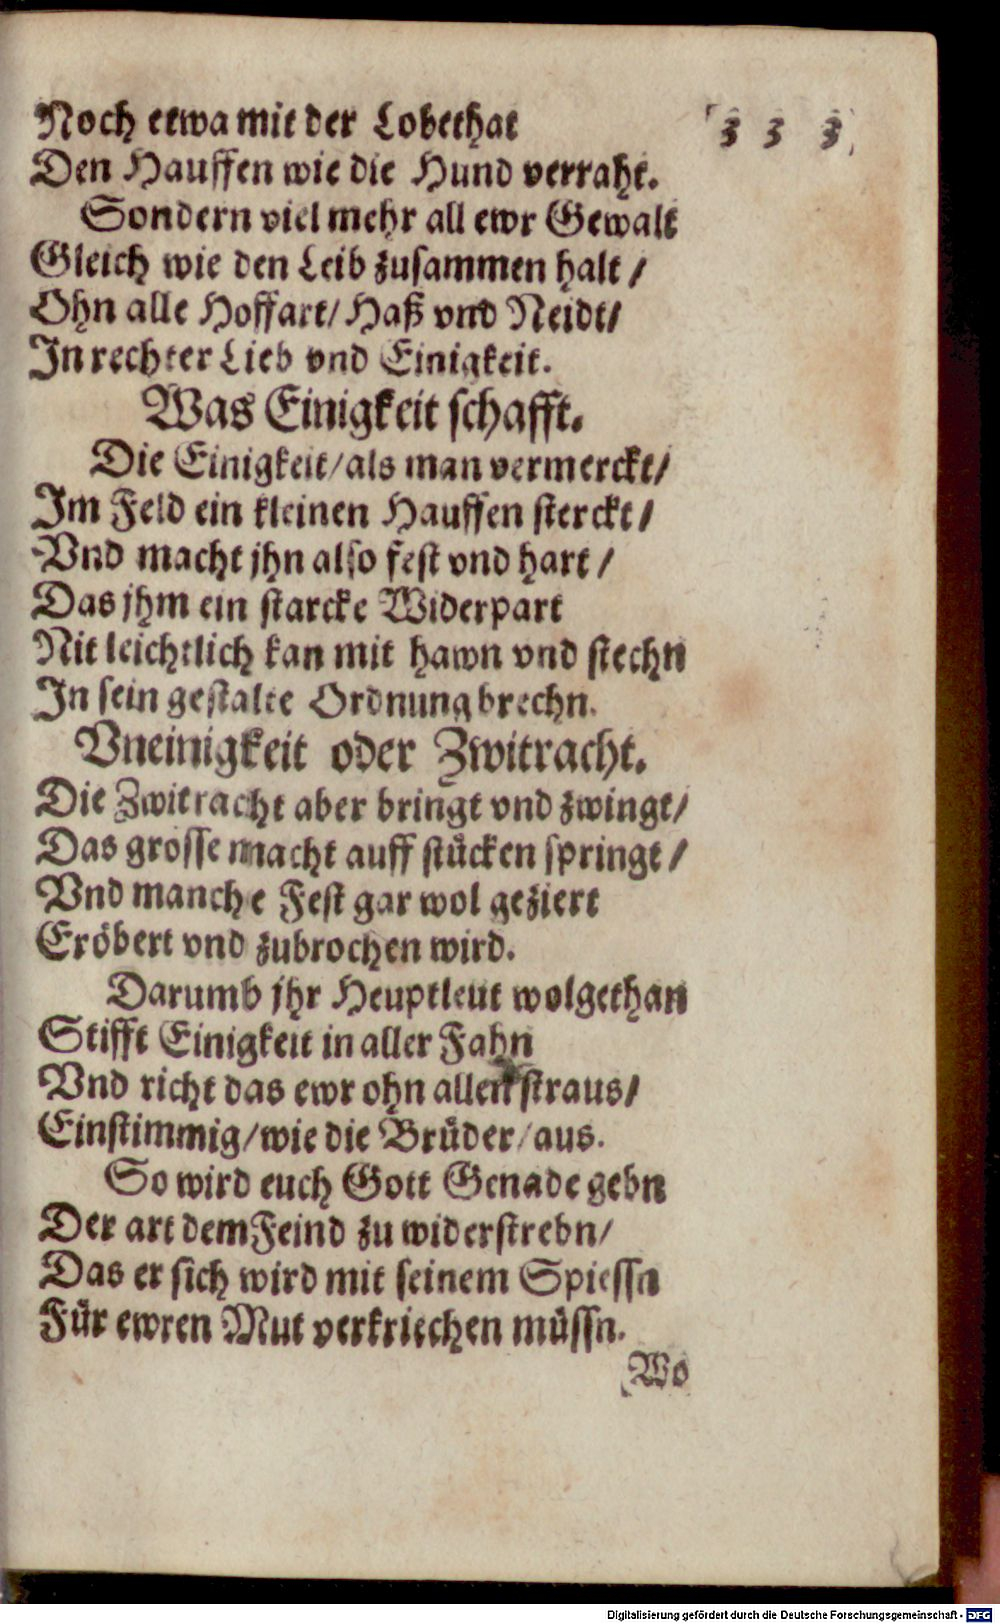 Noch etwa mit der Lobethat
3 3 3
Den Hauffen wie die Hund verraht.
Sondern viel mehr all ewr Gewalt
Gleich wie den Leib zusammen halt /
Ohn alle Hoffart / Haß vnd Neidt /
In rechter Lieb vnd Einigkeit.
Was Einigkeit schafft.
Die Einigkeit / als man vermerckt /
Im Feld ein kleinen Hauffen sterckt /
Vnd macht jhn also fest vnd hart /
Das jhm ein starcke Widerpart
Nit leichtlich kan mit hawn vnd stechn
In sein gestalte Ordnung brechn.
Vneinigkeit oder Zwitracht.
Die Zwitracht aber bringt vnd zwingt /
Das grosse macht auff stücken springt /
Vnd manche Fest gar wol geziert
Eröbert vnd zubrochen wird.
Darumb jhr Heuptleut wolgethan
Stifft Einigkeit in aller Fahn
Vnd richt das ewr ohn allen straus /
Einstimmig / wie die Brüder / aus.
So wird euch Gott Genade gebn
Der art dem Feind zu widerstrebn /
Das er sich wird mit seinem Spiessn
Für ewren Mut verkriechen müssn.
Wo
Digitalisierung gefördert durch die Deutsche Forschungsgemeinschaft - DFG